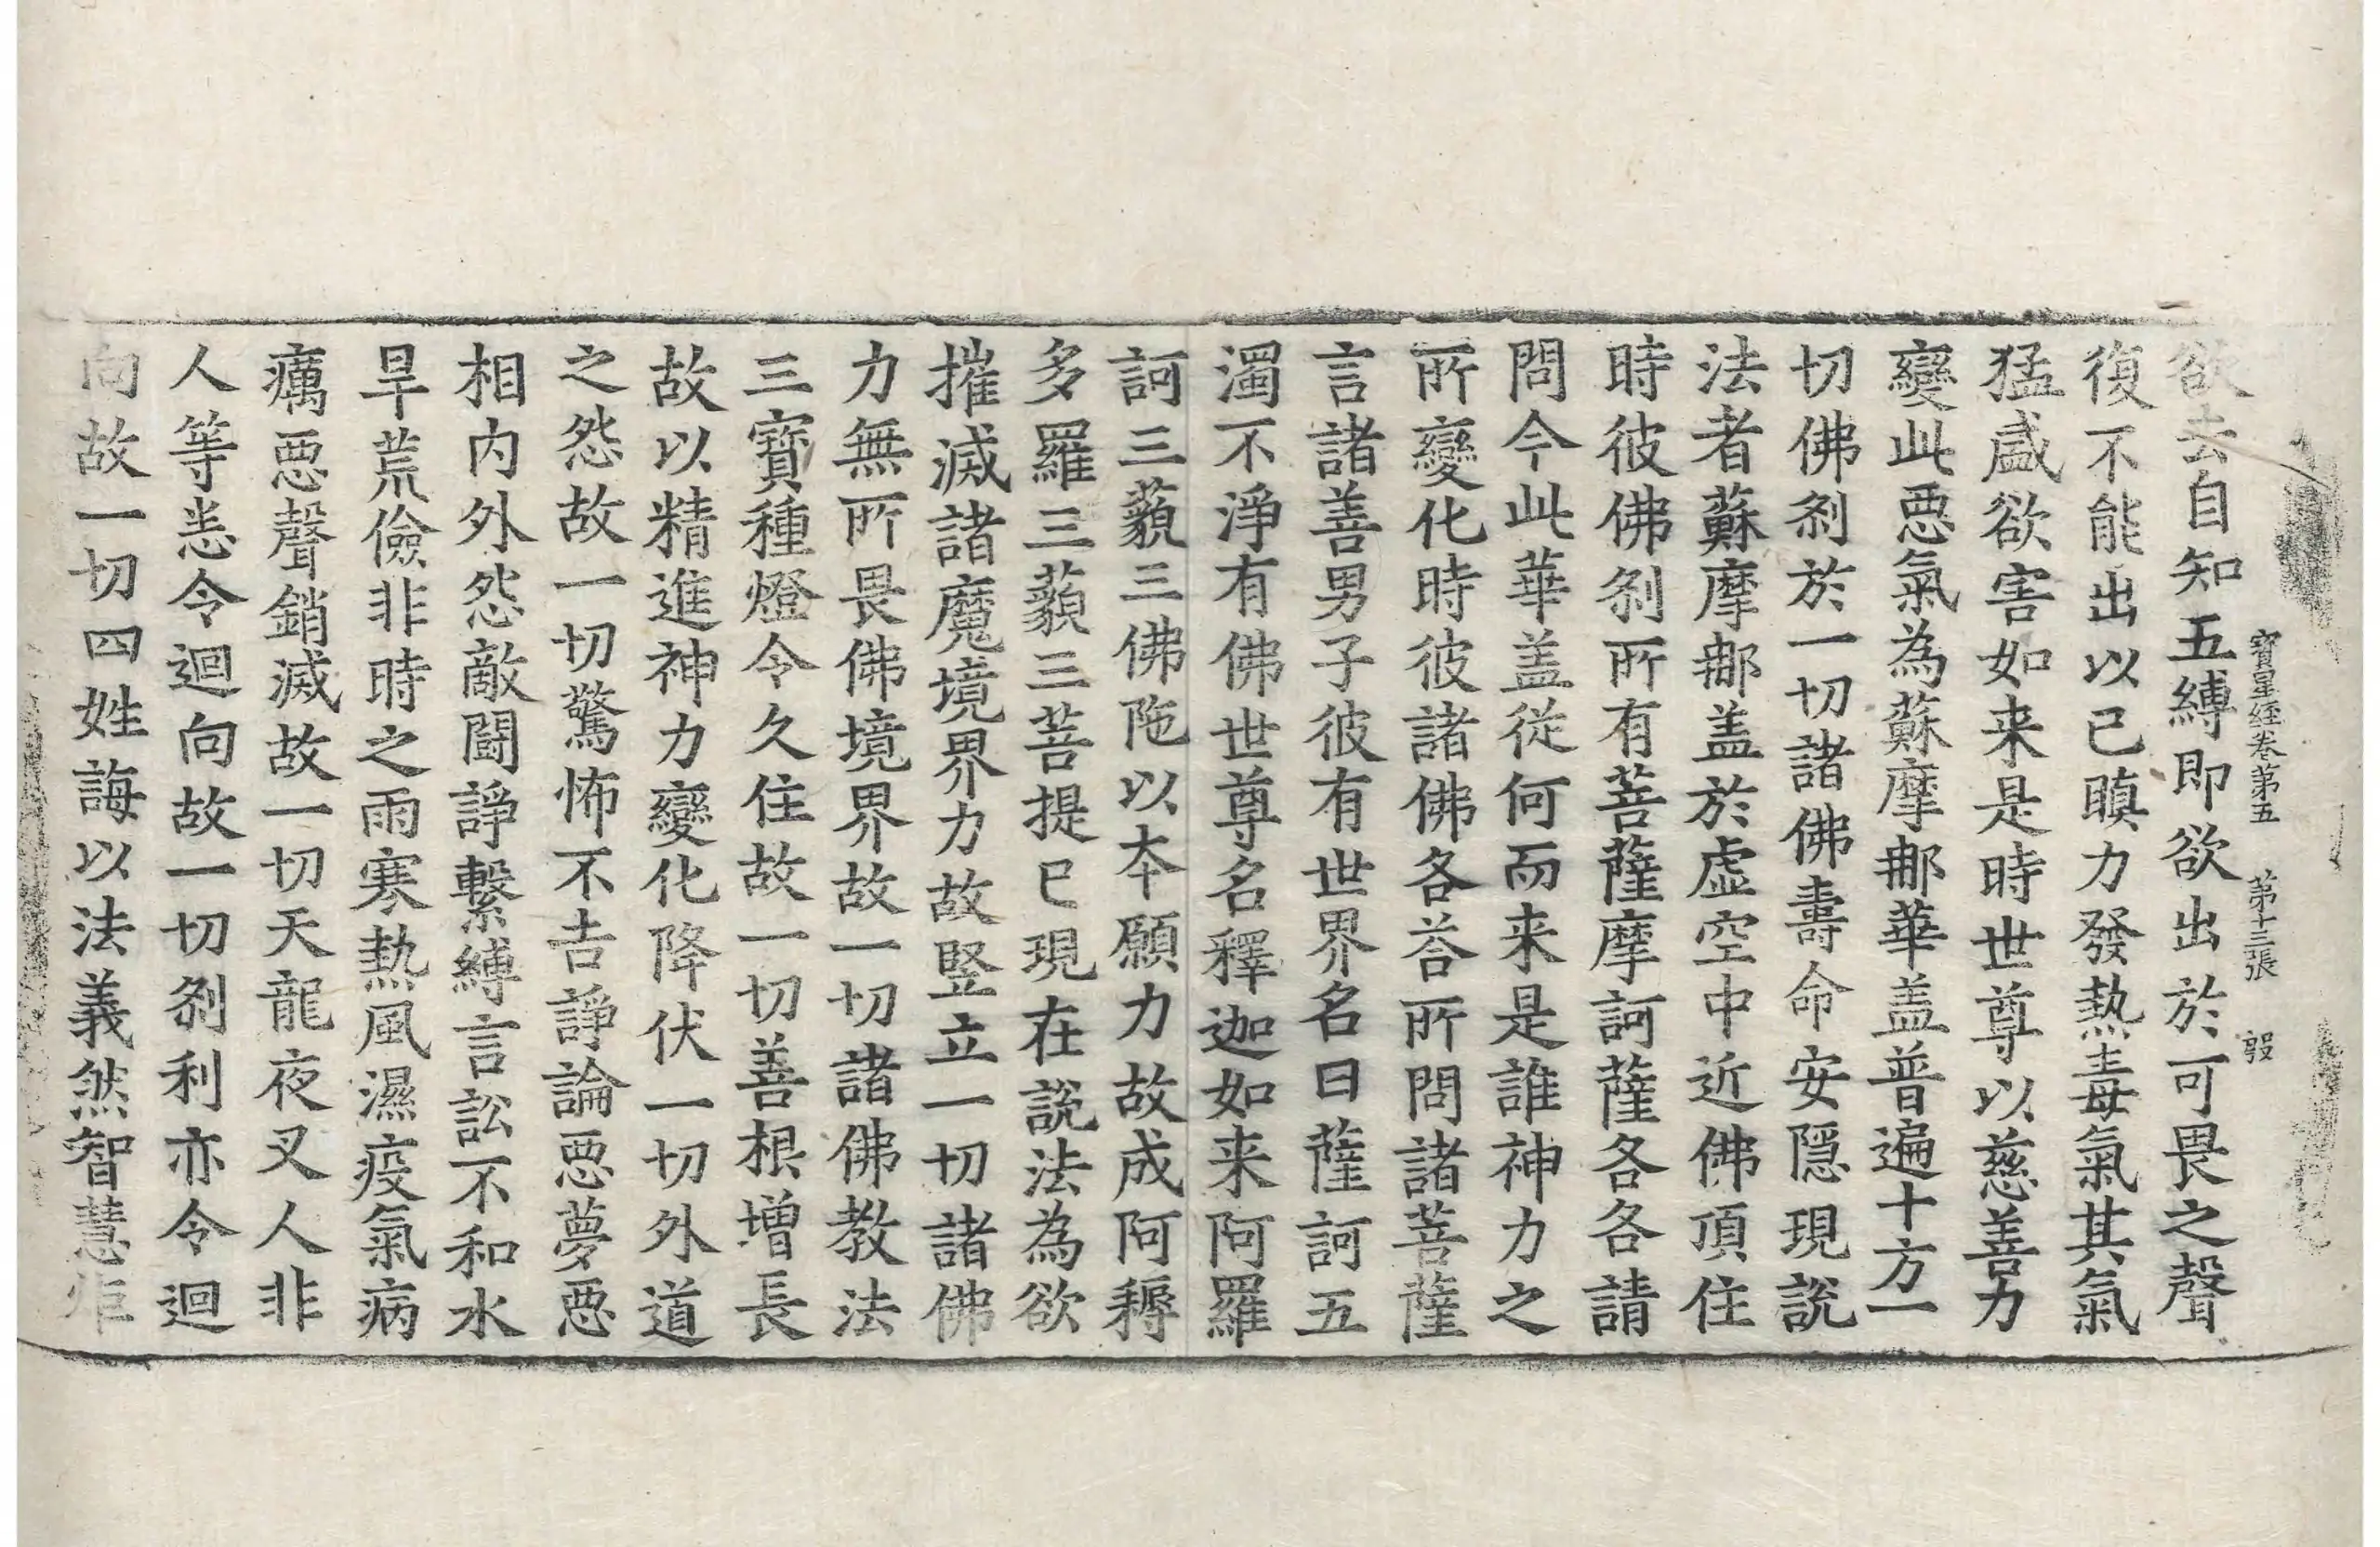 寶星經卷第五 第十三張 㲉
欲去自知五縛即欲出於可畏之聲
復不能出以已瞋力發熱毒氣其氣
猛盛欲害如来是時世尊以慈善力
變此惡氣為蘇摩那華盖普遍十方一
切佛刹於一切諸佛壽命安隱現說
法者蘇摩那盖於虛空中近佛頂住
時彼佛刹所有菩薩摩訶薩各各請
問今此華盖從何而来是誰神力之
所變化時彼諸佛各荅所問諸菩薩
言諸善男子彼有世界名曰薩訶五
濁不淨有佛世尊名釋迦如来阿羅
訶三藐三佛陁以本願力故成阿耨
多羅三藐三菩提已現在說法為欲
摧滅諸魔境界力故竪立一切諸佛
力無所畏佛境界故一切諸佛教法
三寶種燈令久住故一切善根增長
故以精進神力變化降伏一切外道
之怨故一切驚怖不吉諍論惡夢惡
相內外怨敵鬪諍繫縛言訟不和水
旱荒儉非時之雨寒熱風濕疫氣病
癘惡聲銷滅故一切天龍夜叉人非
人等恙令迴向故一切刹利亦令迴
向故一切四姓誨以法義然智慧炬